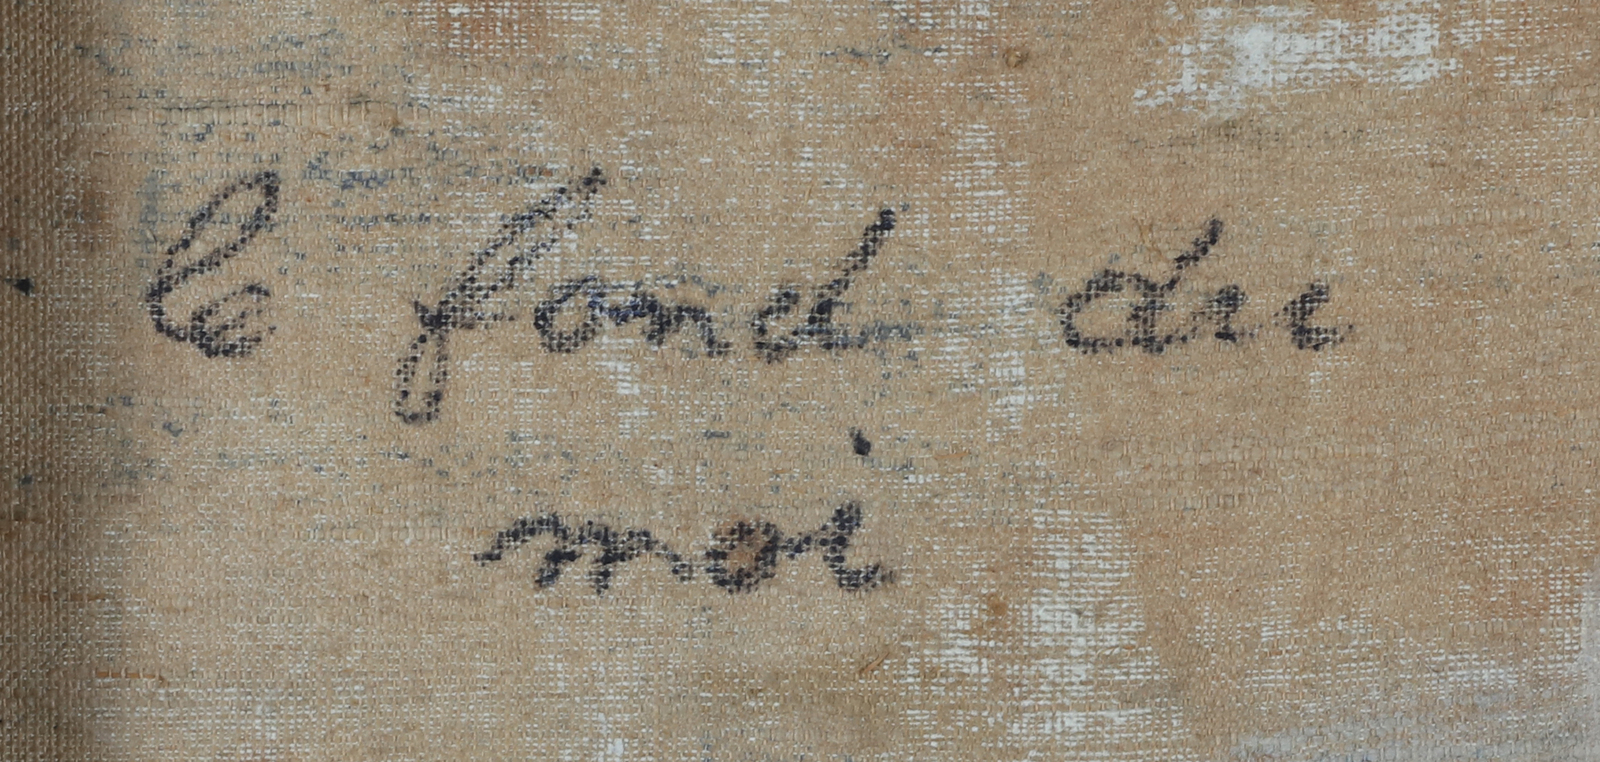 le fond du
moi